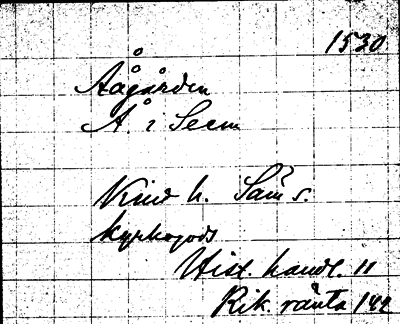 1530
Åågården
Å. i Seem
Kind h. Säm s.
kyrkogods
Hist. handl. 11
Rik. ränta 142